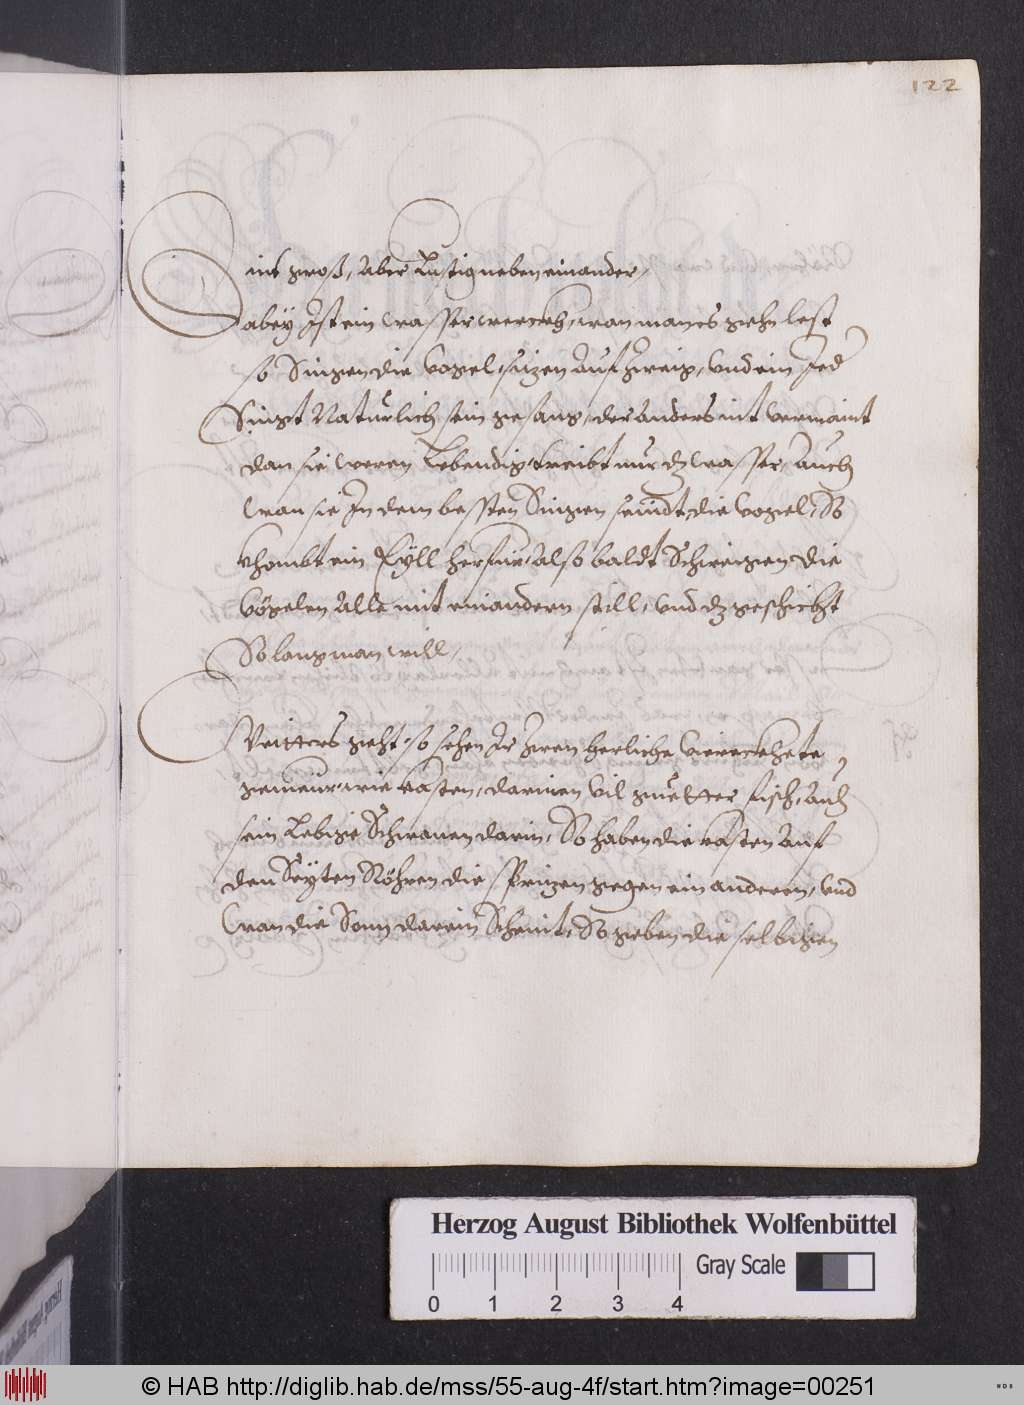 122
nit groß, Aber Lustig neben einander,
Dabey Ist ein wasser werckh, wan mans gehn lest
so Singen die vogel, sitzen Auf zweig, vnd ein Jed
Singt Naturlich sein gesang, der anders nit vermaint
dan sie weren Lebendig, treibt nur dz wasser, Auch
wan sie In dem besten Singen seindt, die vogel, So
khombt ein Eyll herfür, also baldt Schweigen die
Vögelen Alle mit einandern still, vnd dz geschicht
So lang man will,
Weitters geht, so sehen Ir herliche viereckhete
gemeur, wie kasten, darinen vil guetter fisch, Auch
sein Lebige Schwanen darin, So haben die kasten Auf
den Seyten Röhren die spritzen gegen ein anderen, vnd
wan die Sonn darein Scheint, So geben die selbigen
Herzog August Bibliothek Wolfenbüttel
Gray Scale
0 1 2 3 4
© HAB http://diglib.hab.de/mss/55-aug-4f/start.htm?image=00251